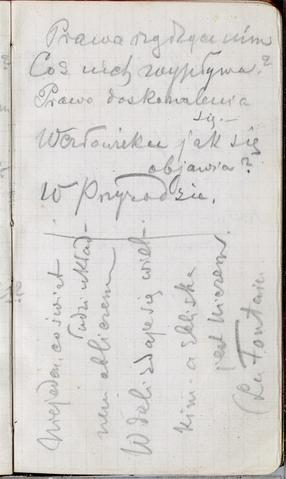 Prawa rządzące nim
Coś nich wypływa?
Prawo doskonalenia
się.—
W człowieku jak się
objawia?
W Przyrodzie.
Niejeden co świat
łudzi układ-
nem obliczem
W dali zdaje się wiel-
kim - a zbliska
jest niczem.
(La Fontaine